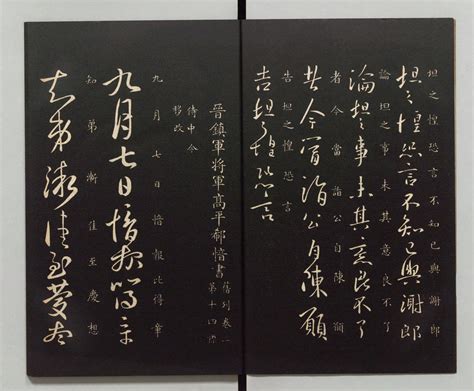 坦之惶恐言不知已與謝郎
坦之惶恐言不知已與謝郎
論坦之事未其意良不了
論坦之事未其意良不了
者今當詣公自陳願
者今當詣公自陳願
告坦之惶恐言
告坦之惶恐言
晉鎮軍將軍高平郗愔書
舊列卷一
第十四
侍中今
移改
九月七日愔報比得章
九月七日愔報比得章
知弟漸佳至慶想
知弟漸佳至慶想